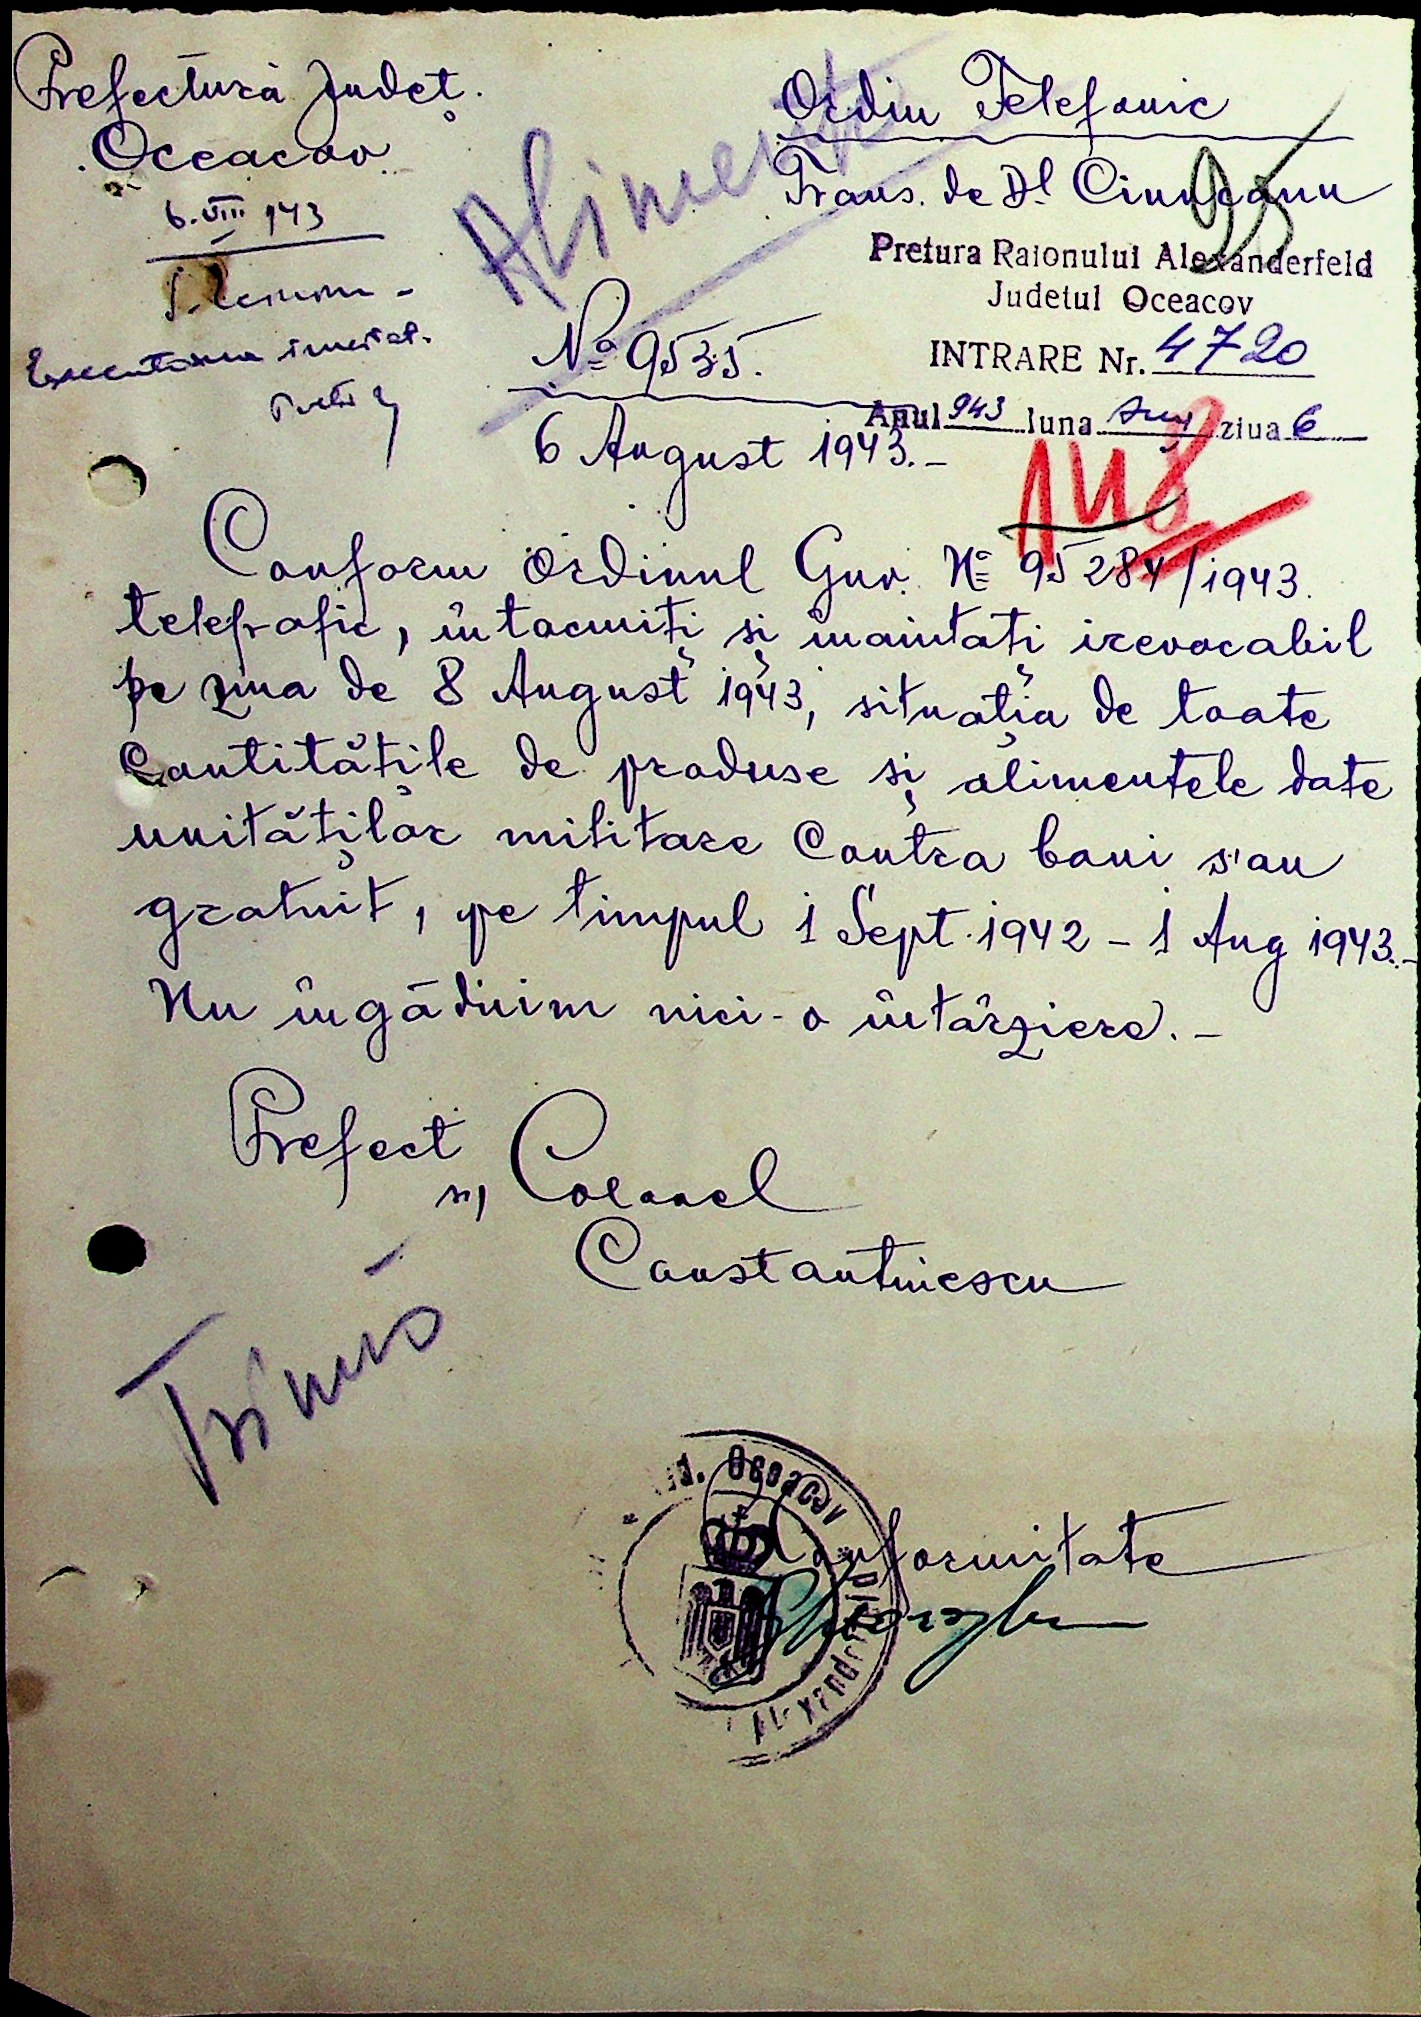 Prefectura Județ.
Oceacov
6.VIII 943
Executarea imediat.
Alimente
Ordin Telefonic
Trans. de Dl Ciunganu
95
Pretura Raionului Alexanderfeld
Judetul Oceacov
INTRARE Nr. 4720
Anul 943 luna Aug ziua 6
No 9535.
6 August 1943.-
Conform Ordinul Guv. No 95284/1943.
telegrafic, întocmiți și înaintați irevocabil
pe ziua de 8 August 1943, situația de toate
Cantitățile de produse și alimentele date
unităților militare Contra bani s'au
gratuit, pe timpul 1 Sept. 1942 - 1 Aug 1943.-
Nu îngăduim nici-o întârziere.-
Prefect
ss, Colonel
Constantinescu
Trimis
Jud. Oceacov
Conformitate
Gheorghe